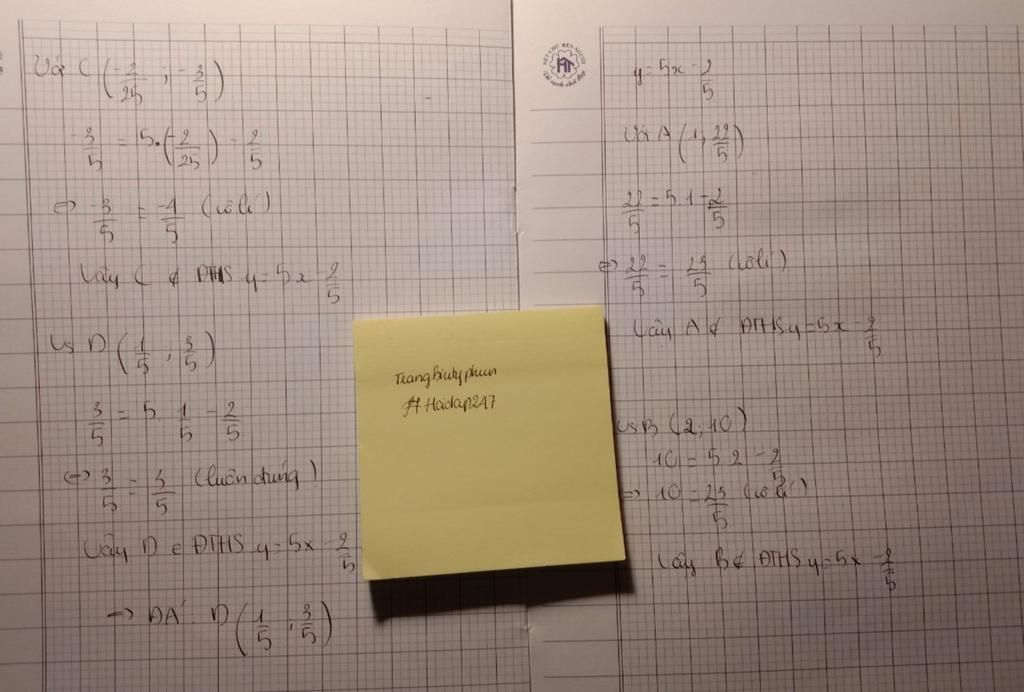 Với C (-2/25 ; -3/5)
-3/5 = 5.(-2/25) - 2/5
⇔ -3/5 = -4/5 (vô lí)
Vậy C ∉ ĐTHS y = 5x - 2/5
Vs D (1/5 ; 3/5)
3/5 = 5. 1/5 - 2/5
⇔ 3/5 = 3/5 (luôn đúng)
Vậy D ∈ ĐTHS y = 5x - 2/5
→ ĐA: D (1/5 ; 3/5)
#Hoidap247
y = 5x - 2/5
Với A (1; 22/5)
22/5 = 5.1 - 2/5
⇔ 22/5 = 23/5 (vô lí)
Vậy A ∉ ĐTHS y = 5x - 2/5
Vs B (2; 10)
10 = 5.2 - 2/5
⇔ 10 = 23/5 (vô lí)
Vậy B ∉ ĐTHS y = 5x - 2/5